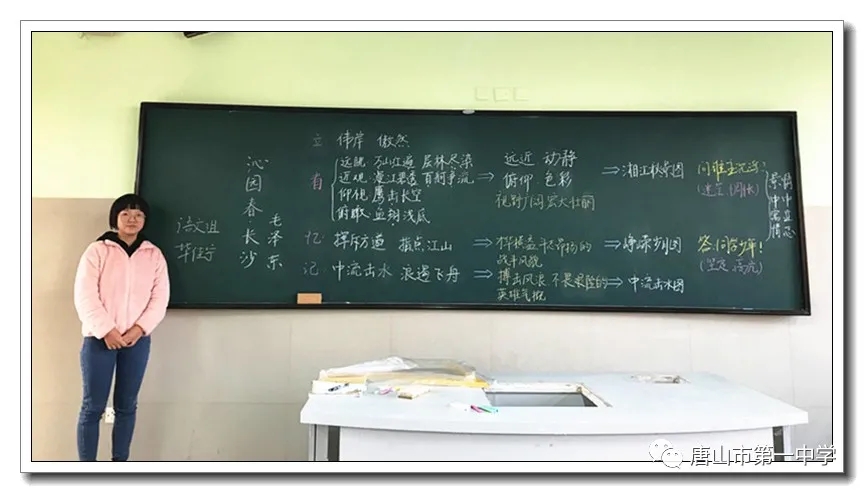 语文组
华佳宁
沁园春长沙
毛泽东
立 伟岸 傲然
看
远眺 万山红遍 层林尽染
近观 漫江碧透 百舸争流
仰视 鹰击长空
俯瞰 鱼翔浅底
⇒ 远近 动静
俯仰 色彩
视野广阔 宏大壮丽
⇒ 湘江秋景图
问 谁主沉浮
忆 挥斥方遒 指点江山
战斗风貌
⇒ 峥嵘岁月图
答 同学少年!
记 中流击水 浪遏飞舟
⇒ 搏击风浪 不畏艰险的
英雄气概
⇒ 中流击水图
景 情
中 中
寓 立
情 志
唐山市第一中学